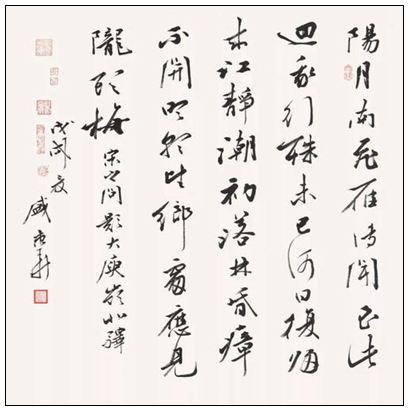 陽月南飛雁傳聞至此
迴我行殊未已何日復歸
来江靜潮初落林昏瘴
不開明朝望鄉處應見
隴頭梅 宋之問題大庾嶺北驛
戊戌夏 盛